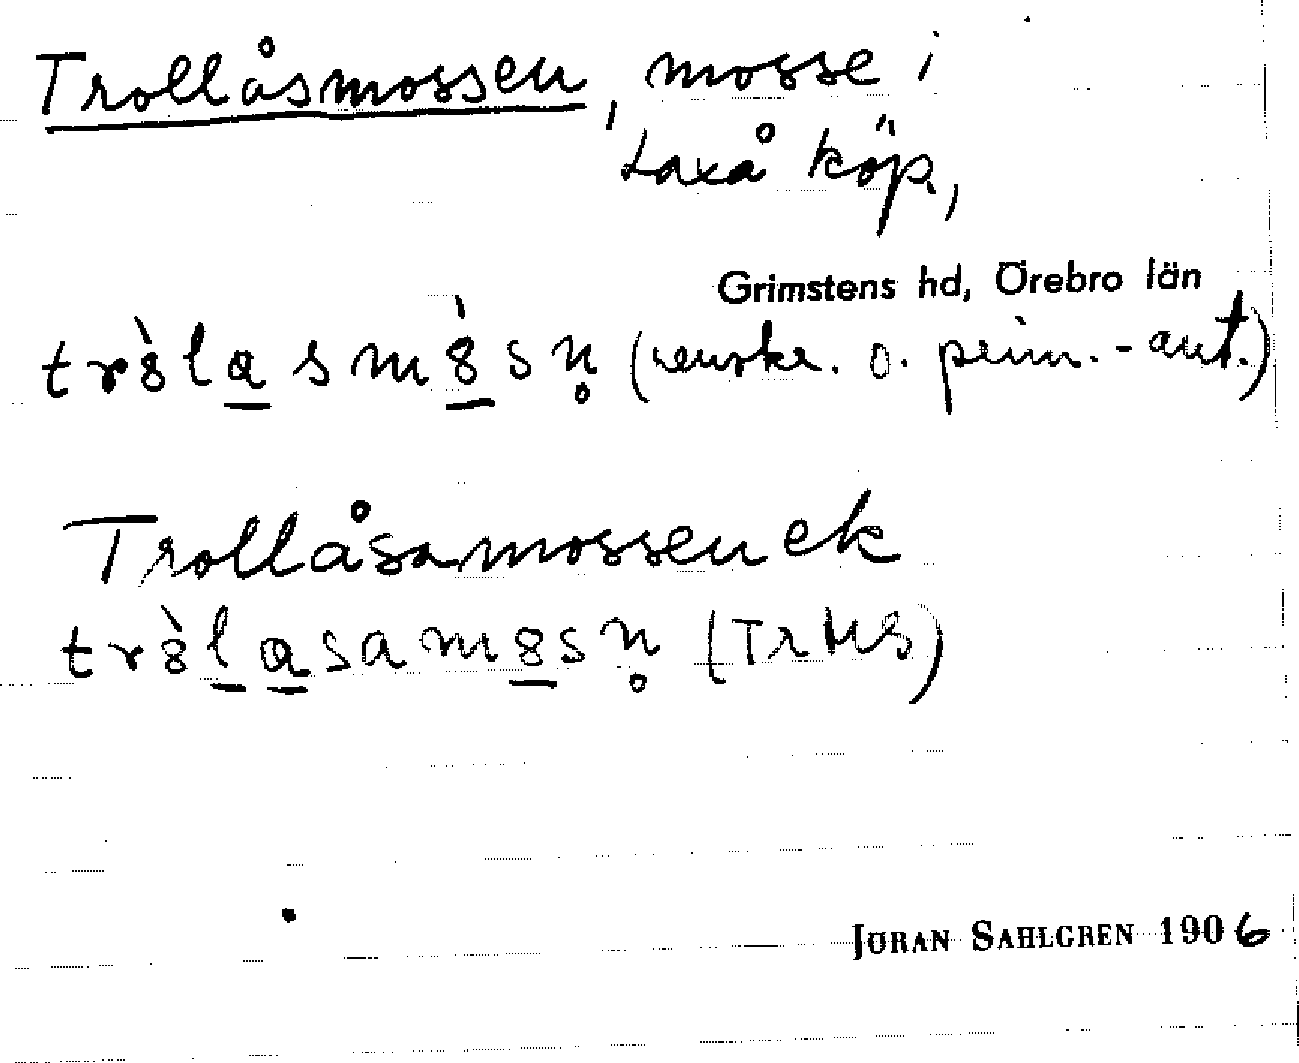 Trollåsmossen, mosse i
Laxå köp,
Grimstens hd, Örebro län
trò̤la̲smò̤̲sn̥ (renskr. o. prim.-ant.)
Trollåsamossen ek
trò̤l̲a̲samo̤̲sn̥ (TrMS)
JÖRAN SAHLGREN 1906